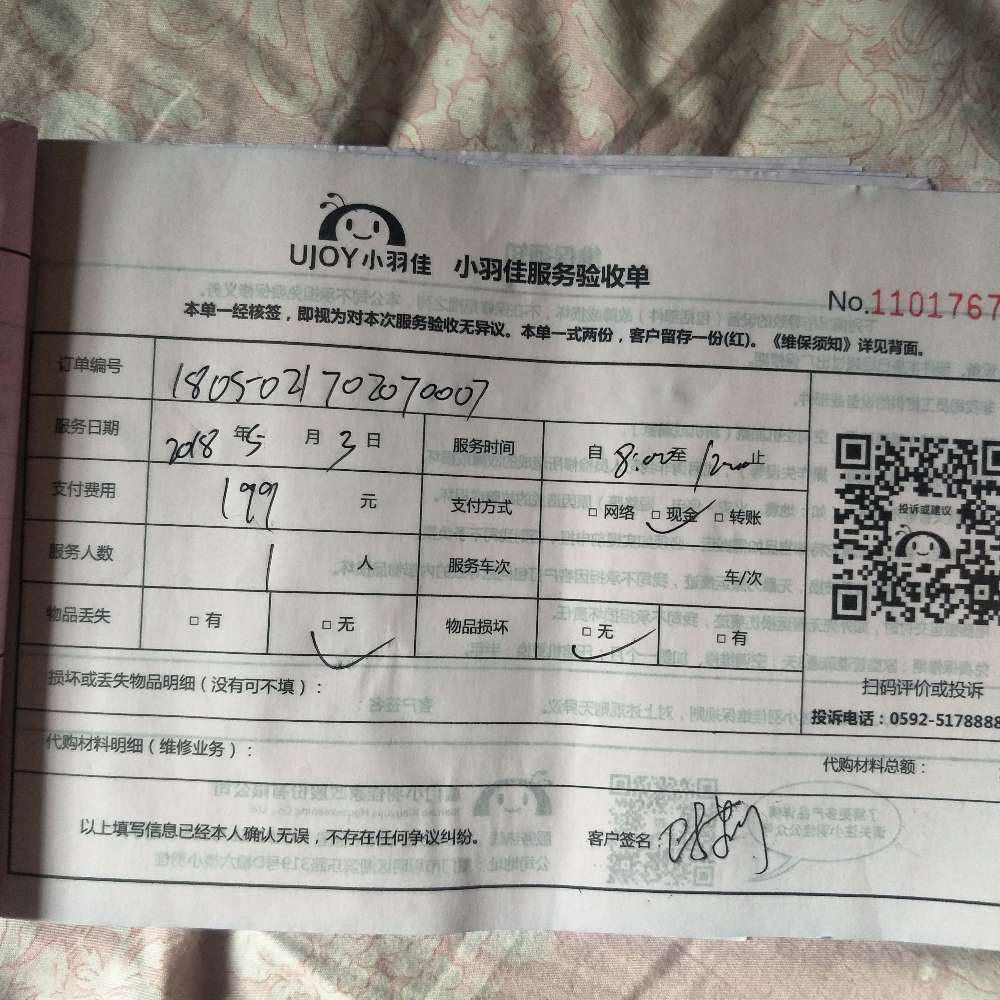 UJOY小羽佳 小羽佳服务验收单
No.1101767
本单一经核签，即视为对本次服务验收无异议。本单一式两份，客户留存一份(红)。《维保须知》详见背面。
订单编号 1805021702070007
服务日期 2018 年 5 月 3 日 服务时间 自 8:00 至 12:00 止
支付费用 199 元 支付方式 □ 网络 □ 现金 □ 转账
服务人数 1 人 服务车次 车/次
物品丢失 □ 有 □ 无 物品损坏 □ 无 □ 有
投诉或建议
扫码评价或投诉
投诉电话：0592-5178888
损坏或丢失物品明细（没有可不填）：
代购材料明细（维修业务）：
代购材料总额：
以上填写信息已经本人确认无误，不存在任何争议纠纷。
客户签名：